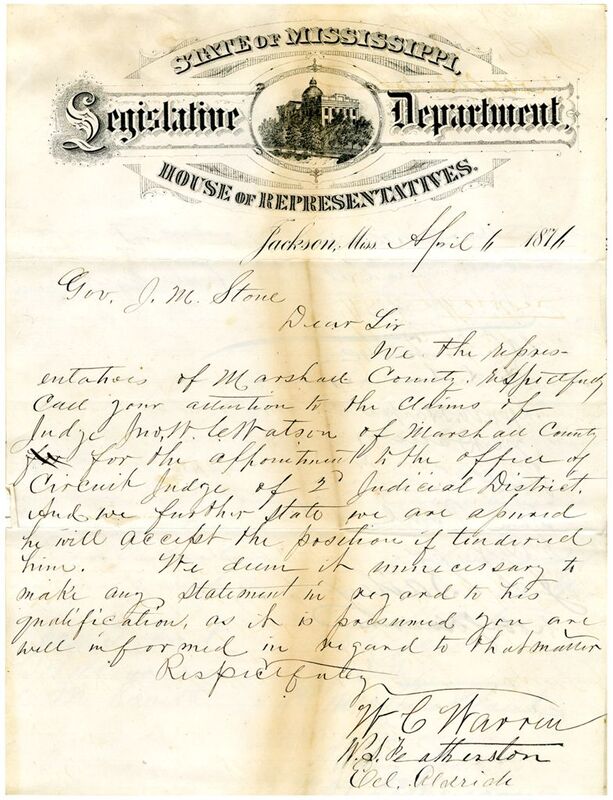 STATE OF MISSISSIPPI,
Legislative Department,
HOUSE OF REPRESENTATIVES.
Jackson, Miss April 6 1876
Gov. J. M. Stone
Dear Sir
We the repres-
entatives of Marshall County respectfully
call your attention to the claims of
Judge Jno. W. C. Watson of Marshall County
for the appointment to the office of
Circuit Judge of 2d Judicial District,
and we further state we are assured
he will accept the position if tendered
him. We deem it unnecessary to
make any statement in regard to his
qualification, as it is presumed you are
well informed in regard to that matter
Respectfully
W C Warren
W. S. Featherston
Aldrich